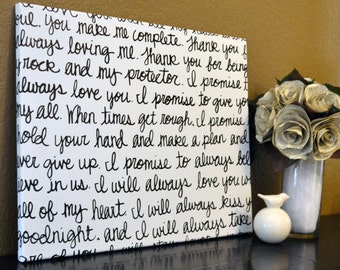 love you with all my heart and
soul. You make me complete. Thank you
always loving me. Thank you for being
rock and my protector. I promise t
always love you. I promise to give you
my all. When times get rough, I promise
hold your hand and make a plan and
ver give up. I promise to always be
ieve in us. I will always love you w
all of my heart. I will always kiss y
goodnight. and I will always take